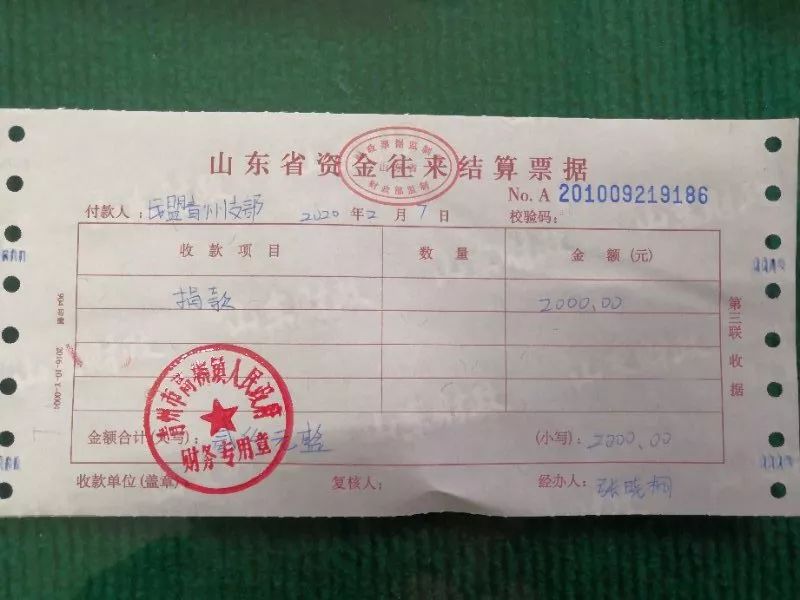 山东省资金往来结算票据
财政部监制
No. A 201009219186
付款人：民盟青州支部 2020 年 2 月 7 日 校验码：
收款项目 数量 金额（元）
捐款 2000.00
第三联 收据
青州市高桥镇人民政府
财务专用章
金额合计 元整 （小写）：2000.00
收款单位(盖章) 复核人： 经办人：张晓桐